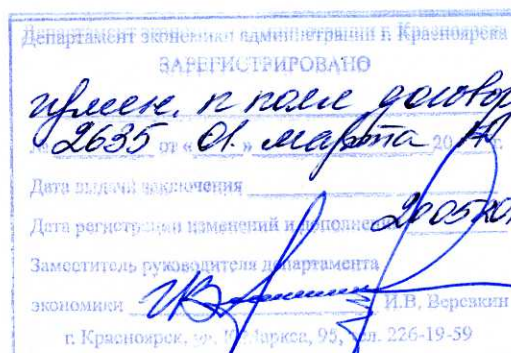 Департамент экономики администрации г. Красноярска
ЗАРЕГИСТРИРОВАНО
измен. п
№ 2635 от « 01 » марта 20 г.
Дата выдачи заключения
Дата регистрации изменений и дополнений
Заместитель руководителя департамента
экономики И.В. Веревкин
г. Красноярск, ул. К.Маркса, 95, тел. 226-19-59